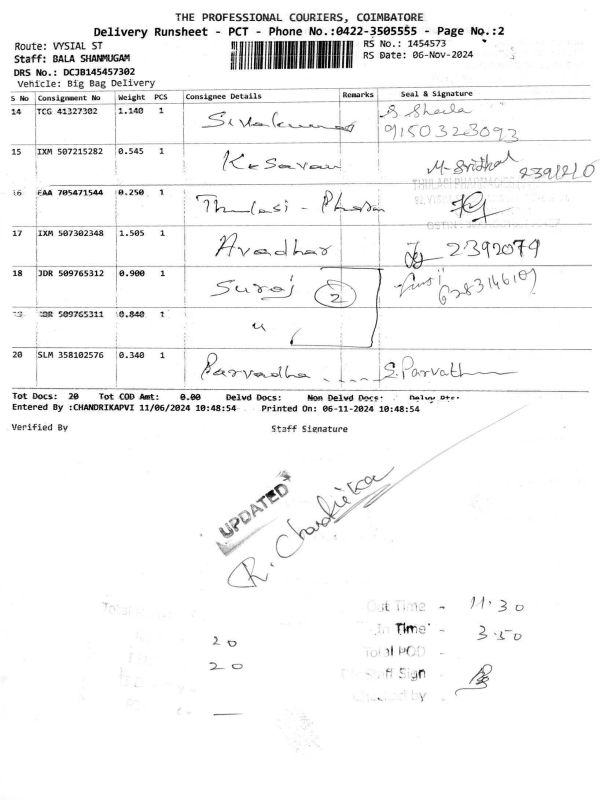 THE PROFESSIONAL COURIERS, COIMBATORE
Delivery Runsheet - PCT - Phone No.:0422-3505555 - Page No.:2
Route: VYSIAL ST RS No.: 1454573
Staff: BALA SHANMUGAM RS Date: 06-Nov-2024
DRS No.: DCJB145457302
Vehicle: Big Bag Delivery
S No Consignment No Weight PCS Consignee Details Remarks Seal & Signature
14 TCG 41327302 1.140 1 Sivakumar S Sheela
9150323093
15 IXM 507215282 0.545 1 Kesavan M. Sridhar 2391210
16 EAA 705471544 0.250 1 Thulasi - Pharm
17 IXM 507302348 1.505 1 Avadhar 2392079
18 JDR 509765312 0.900 1 Suraj 2 6283146107
19 JDR 509765311 0.840 1 "
20 SLM 358102576 0.340 1 Parvadha ..... S. Parvathi
Tot Docs: 20 Tot COD Amt: 0.00 Delvd Docs: Non Delvd Docs: Delvy Pts:
Entered By :CHANDRIKAPVI 11/06/2024 10:48:54 Printed On: 06-11-2024 10:48:54
Verified By Staff Signature
UPDATED
R. Chandrika
Out Time - 11.30
In Time - 3.50
20
Total POD -
20
Staff Sign -